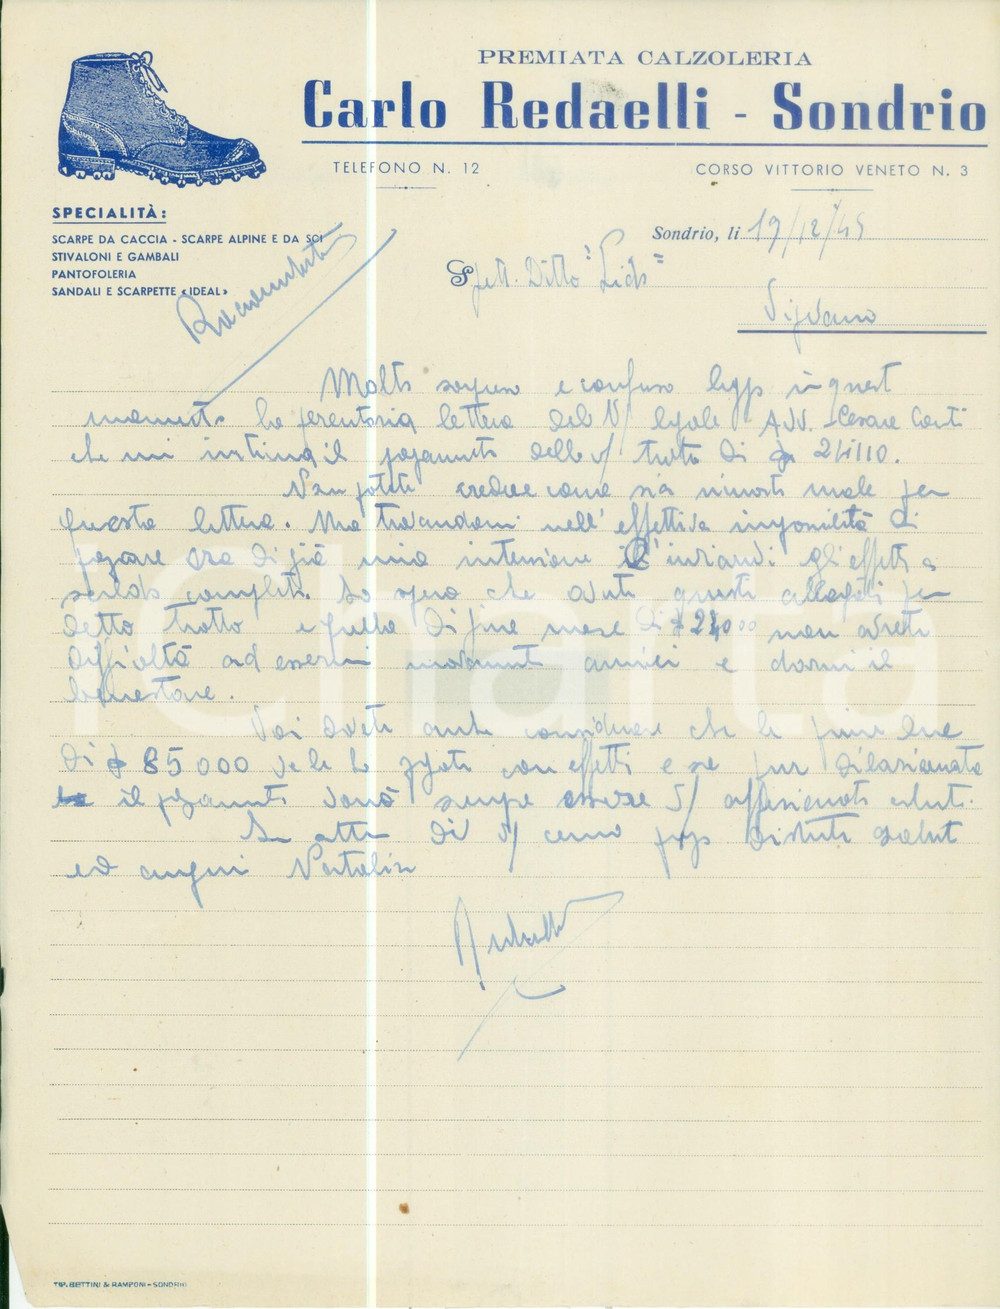 PREMIATA CALZOLERIA
Carlo Redaelli - Sondrio
TELEFONO N. 12
CORSO VITTORIO VENETO N. 3
SPECIALITÀ:
SCARPE DA CACCIA - SCARPE ALPINE E DA SCI
STIVALONI E GAMBALI
PANTOFOLERIA
SANDALI E SCARPETTE «IDEAL»
Raccomandata
Sondrio, li 19/12/49
Spett. Ditta
Vigevano
Molto sorpreso e confuso leggo in quest
momento la perentoria lettera del V/ legale Avv. Cesare Conti
che mi intima il pagamento della s/ tratta di 
Non potete credere come sia rimasto male per
questa lettera. Ma trovandomi nell'effettiva impossibilità di
pagare ora di già mia intenzione inviarvi gli effetti a
saldo completo. Io spero che avuti questi allegati per
detta tratta e quella di fine mese di 
difficoltà ad essermi nuovamente amici e darmi il
benestare.
Voi dovete anche considerare che le prime due
di £ 85000 ve le ho pagate con effetti e se pur dilazionato
il pagamento dovrò sempre essere V/ affezionato cliente.
In attesa di V/ cenno porgo distinti saluti
ed auguri Natalizi
Redaelli
TIP. BETTINI & RAMPONI - SONDRIO
iCharta